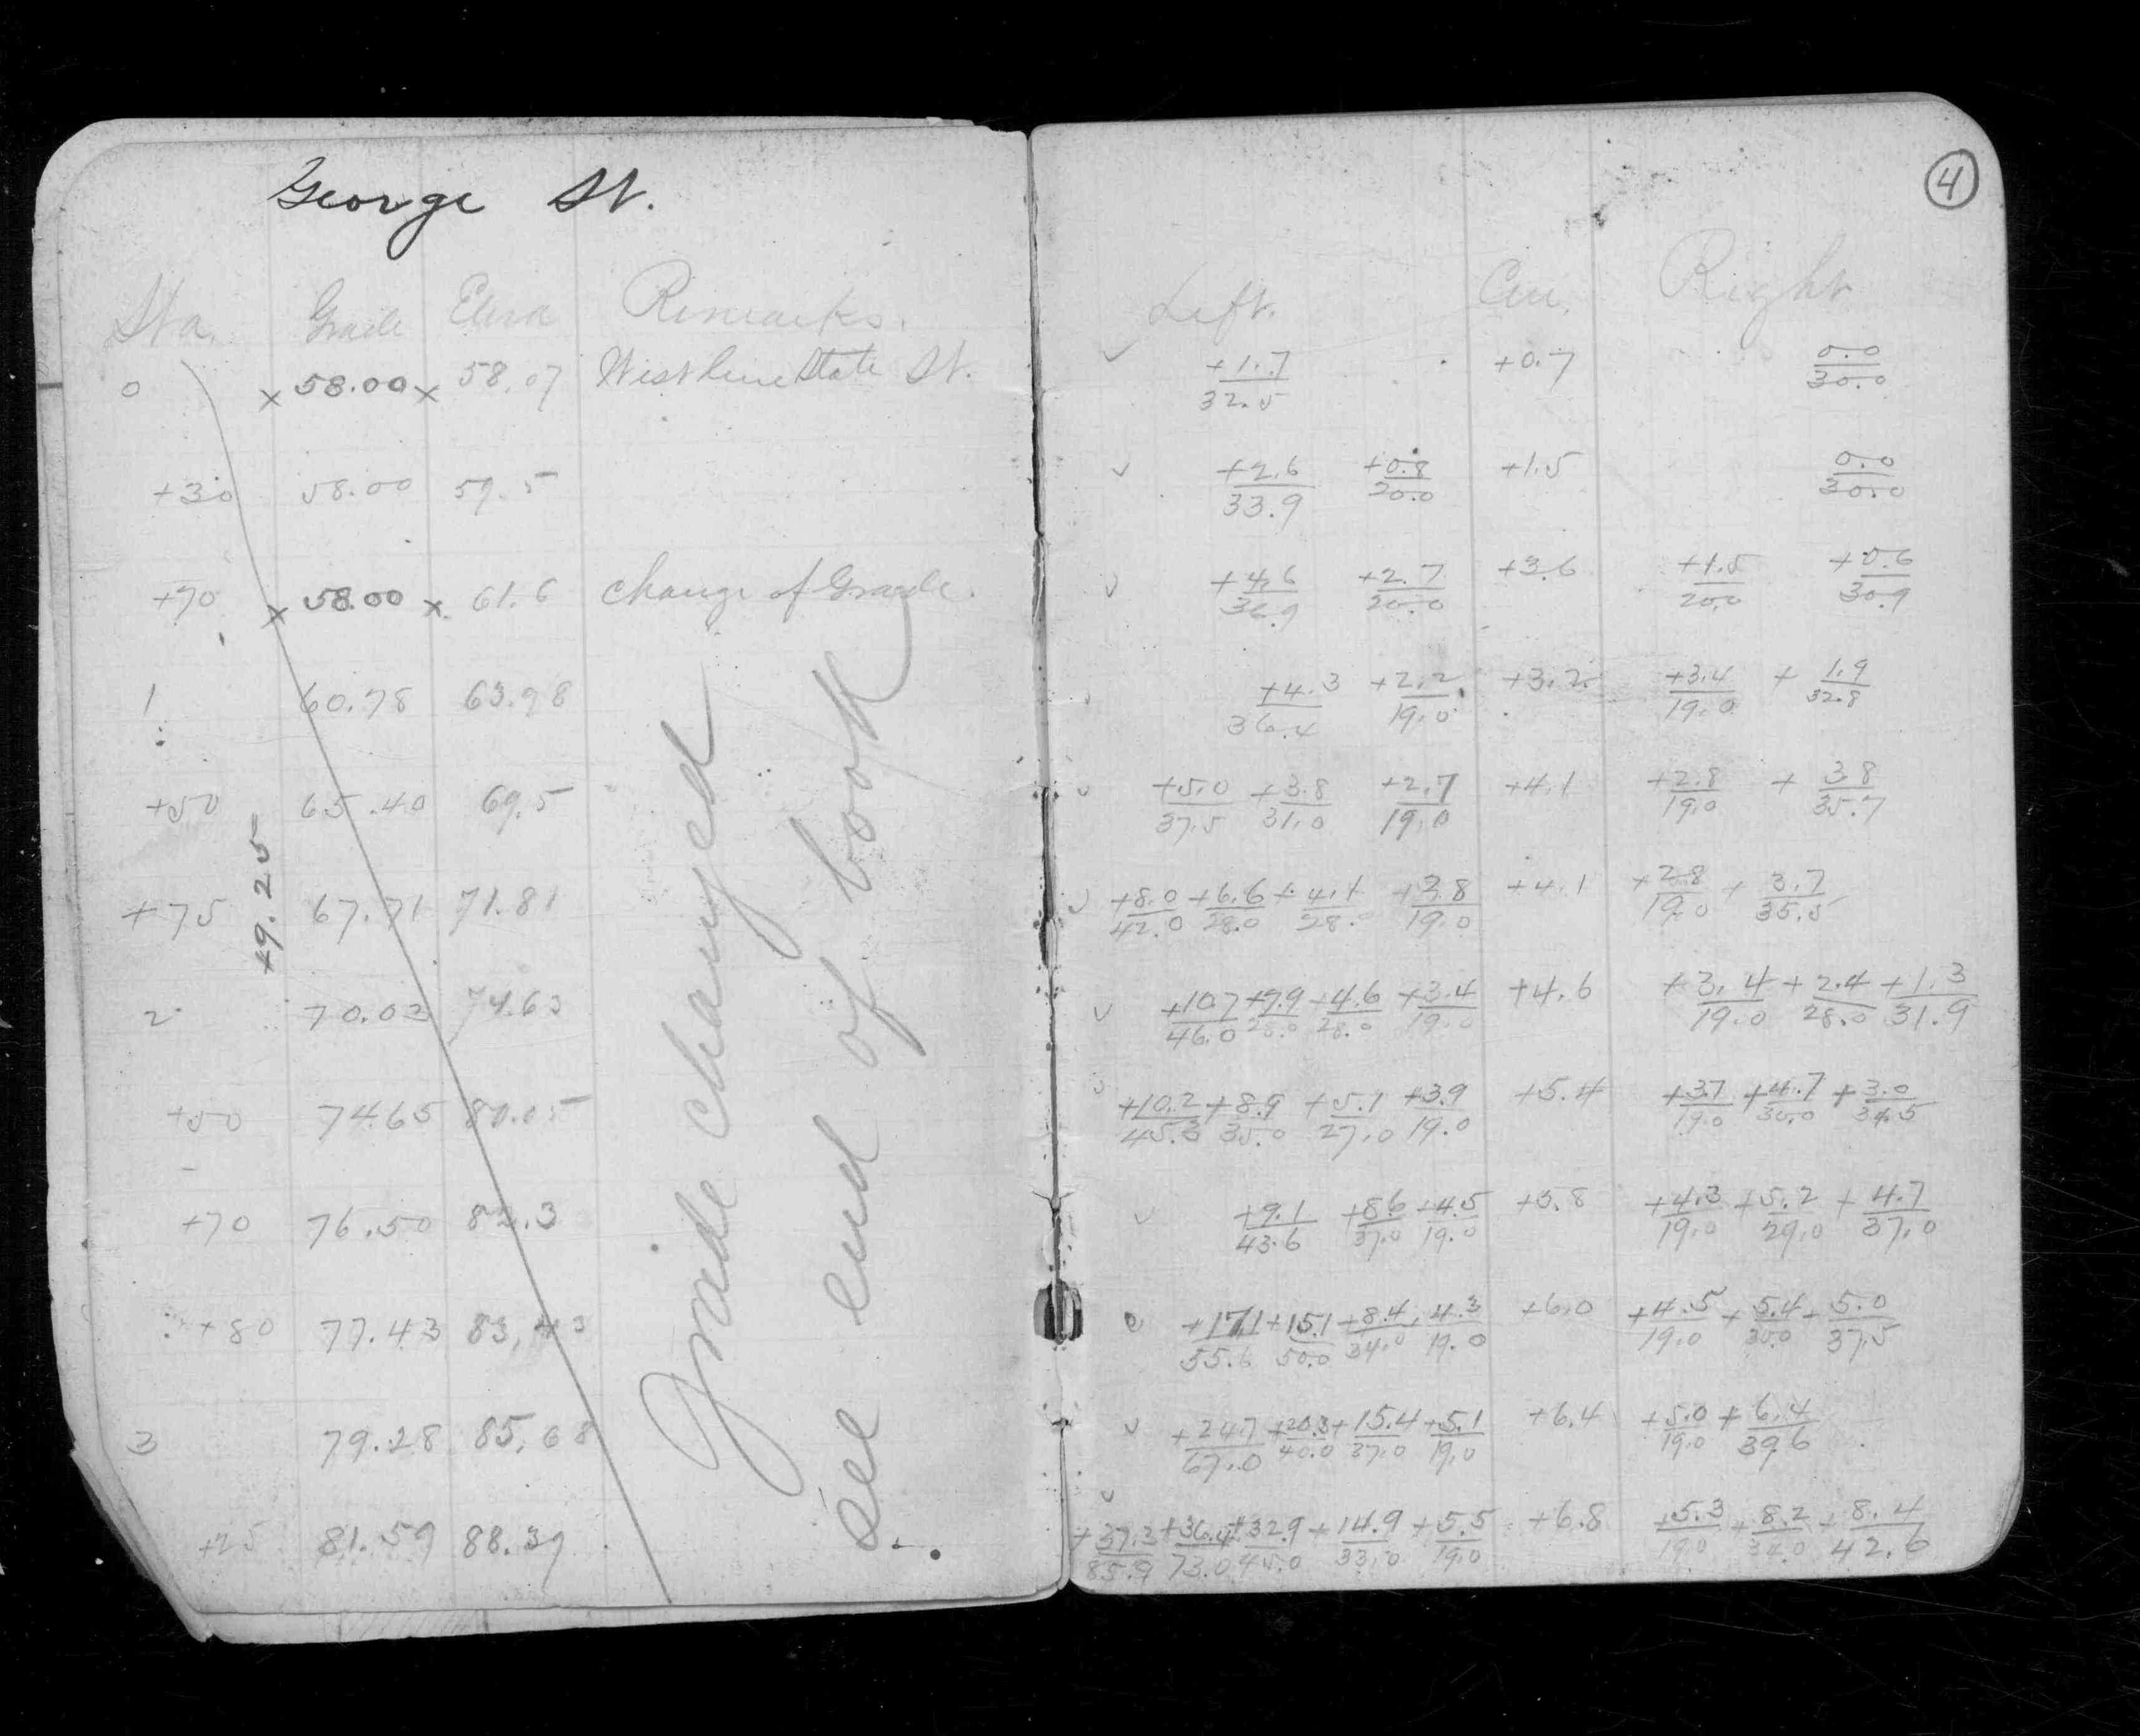 George St.
Sta. Grade Eleva Remarks.
0 x 58.00 x 58.07 West line State St.
+30 58.00 59.5
+70 x 58.00 x 61.6 change of Grade.
1 60.78 63.98
+50 65.40 69.5
+75 67.71 71.81
2 70.03 74.63
+50 74.65 80.05
+70 76.50 82.3
+80 77.43 83.43
3 79.28 85.68
+25 81.59 88.39
+9.25
Grade changed
see end of book
4
Left. Cen. Right
+1.7/32.5 +0.7 0.0/30.0
+2.6/33.9 +0.8/20.0 +1.5 0.0/30.0
+4.6/36.9 +2.7/20.0 +3.6 +1.5/20.0 +0.6/30.9
+4.3/36.4 +2.2/19.0 +3.2 +3.4/19.0 +1.9/32.8
+5.0/37.5 +3.8/31.0 +2.7/19.0 +4.1 +2.8/19.0 +3.8/35.7
+8.0/42.0 +6.6/28.0 +4.1/28. +3.8/19.0 +4.1 +2.8/19.0 +3.7/35.5
+10.7/46.0 +7.9/28.0 +4.6/28.0 +3.4/19.0 +4.6 +3.4/19.0 +2.4/28.0 +1.3/31.9
+10.2/45.3 +8.9/35.0 +5.1/27.0 +3.9/19.0 +5.4 +3.7/19.0 +4.7/30.0 +3.0/34.5
+9.1/43.6 +8.6/37.0 +4.5/19.0 +5.8 +4.3/19.0 +5.2/29.0 +4.7/37.0
+17.1/55.6 +15.1/50.0 +8.4/34.0 4.3/19.0 +6.0 +4.5/19.0 +5.4/30.0 +5.0/37.5
+24.7/67.0 +20.3/40.0 +15.4/37.0 +5.1/19.0 +6.4 +5.0/19.0 +6.4/39.6
+37.3/85.9 +36.4/73.0 +32.9/45.0 +14.9/33.0 +5.5/19.0 +6.8 +5.3/19.0 +8.2/34.0 +8.4/42.6